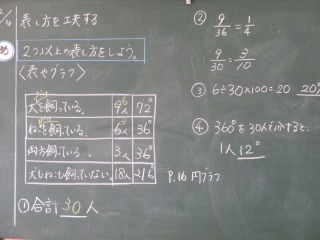 表し方を工夫する
め
2つ以上の表し方をしよう。
〈表やグラフ〉
犬を飼っている。 72°
ねこを飼っている。 6人 36°
両方飼っている。 3人 36°
犬もねこも飼っていない。 18人 216°
①合計 30人
② 9/36 = 1/4
9/30 = 3/10
③ 6÷30×100=20 20%
④ 360°を30人で
1人12°
P.16 円グラフ